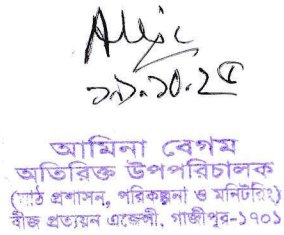 ২১.১০.২৫
আমিনা বেগম
অতিরিক্ত উপপরিচালক
(মাঠ প্রশাসন, পরিকল্পনা ও মনিটরিং)
বীজ প্রত্যয়ন এজেন্সী, গাজীপুর-১৭০১